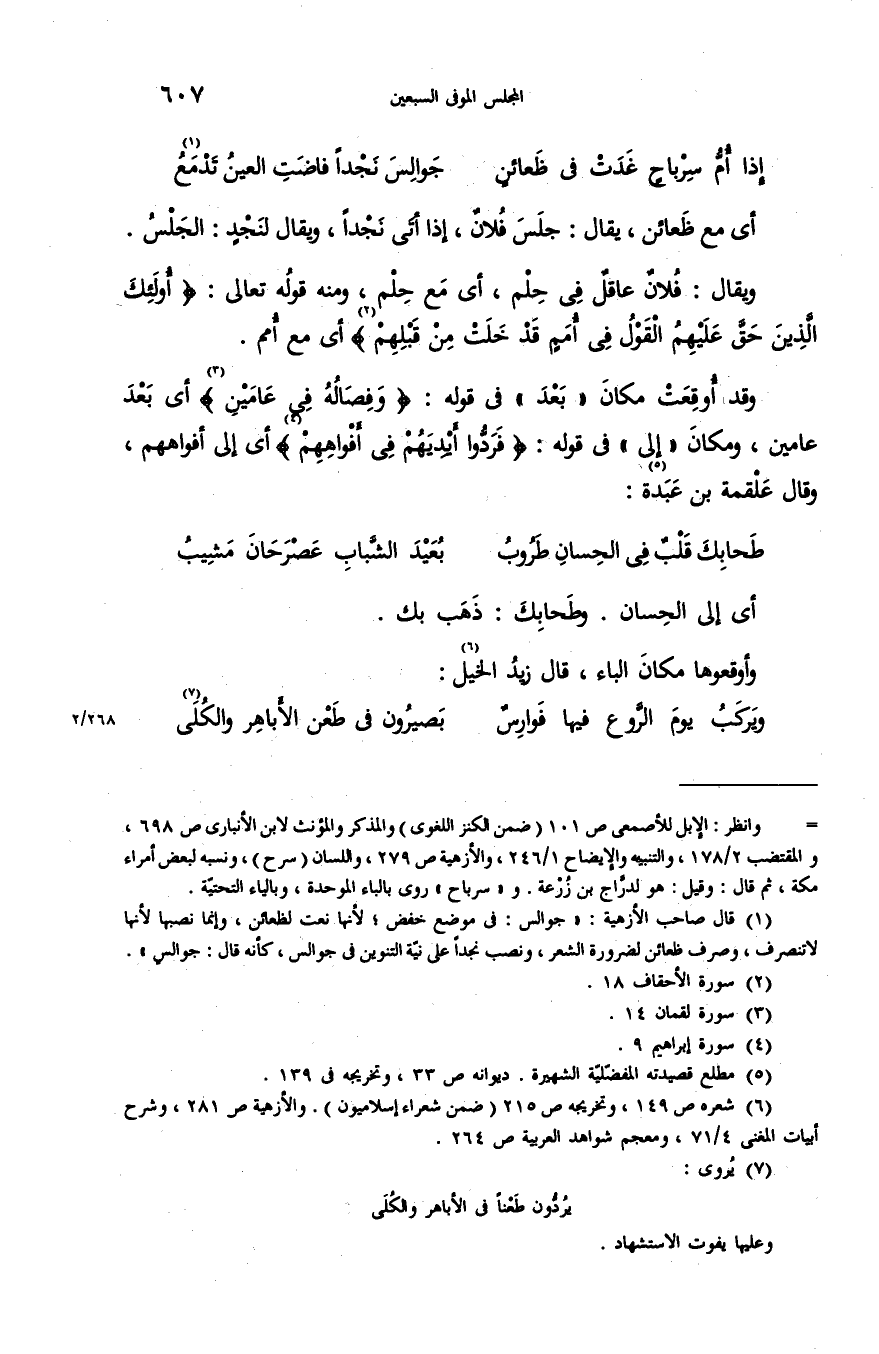 المجلس الموفى السبعين ٦٠٧
إِذا أُمُّ سِرْباحٍ غَدَتْ فى ظَعائنٍ جَوالِسَ نَجْداً فاضَتِ العينُ تَدْمَعُ (١)
أى مع ظَعائن ، يقال : جلَسَ فُلانٌ ، إذا أتَى نَجْداً ، ويقال لنَجْدٍ : الجَلْسُ .
ويقال : فُلانٌ عاقلٌ فِى حِلْم ، أى مَع حِلْم ، ومنه قولُه تعالى : ﴿ أُولَئِكَ
الَّذِينَ حَقَّ عَلَيْهِمُ الْقَوْلُ فِى أُمَمٍ قَدْ خَلَتْ مِنْ قَبْلِهِمْ ﴾ (٢) أى مع أُمم .
وقد أُوقِعَتْ مكانَ « بَعْدَ » فى قوله : ﴿ وَفِصَالُهُ فِي عَامَيْنِ ﴾ (٣) أى بَعْدَ
عامين ، ومكانَ « إلى » فى قوله : ﴿ فَرَدُّوا أَيْدِيَهُمْ فِى أَفْواهِهِمْ ﴾ (٤) أى إلى أفواههم ،
وقال عَلْقمة بن عَبَدة (٥) :
طَحابِكَ قَلْبٌ فِى الحِسانِ طَرُوبُ بُعَيْدَ الشَّبابِ عَصْرَحَانَ مَشِيبُ
أى إلى الحِسان . وطَحابِكَ : ذَهَب بك .
وأوقعوها مكانَ الباء ، قال زيدُ الخيل (٦) :
ويَركَبُ يومَ الرَّوع فيها فَوارِسٌ بَصيرُون فى طَعْن الأَباهِر والكُلَى (٧) ٢/٢٦٨
= وانظر : الإبل للأصمعى ص ١٠١ ( ضمن الكنز اللغوى ) والمذكر والمؤنث لابن الأنبارى ص ٦٩٨ ،
و المقتضب ١٧٨/٢ ، والتنبيه والإيضاح ٢٤٦/١ ، والأزهية ص ٢٧٩ ، واللسان ( سرح ) ، ونسبه لبعض أمراء
مكة ، ثم قال : وقيل : هو لدرَّاج بن زُرْعة . و « سرباح » روى بالباء الموحدة ، وبالياء التحتيّة .
(١) قال صاحب الأزهية : « جوالس : فى موضع خفض ؛ لأنها نعت لظعائن ، وإنما نصبها لأنها
لاتنصرف ، وصرف ظعائن لضرورة الشعر ، ونصب نجداً على نيّة التنوين فى جوالس ، كأنه قال : جوالس » .
(٢) سورة الأحقاف ١٨ .
(٣) سورة لقمان ١٤ .
(٤) سورة إبراهيم ٩ .
(٥) مطلع قصيدته المفضّليّة الشهيرة . ديوانه ص ٣٣ ، وتخريجه فى ١٣٩ .
(٦) شعره ص ١٤٩ ، وتخريجه ص ٢١٥ ( ضمن شعراء إسلاميون ) . والأزهية ص ٢٨١ ، وشرح
أبيات المغنى ٧١/٤ ، ومعجم شواهد العربية ص ٢٦٤ .
(٧) يُروى :
يرُدُّون طَعْناً فى الأباهر والكُلَى
وعليها يفوت الاستشهاد .